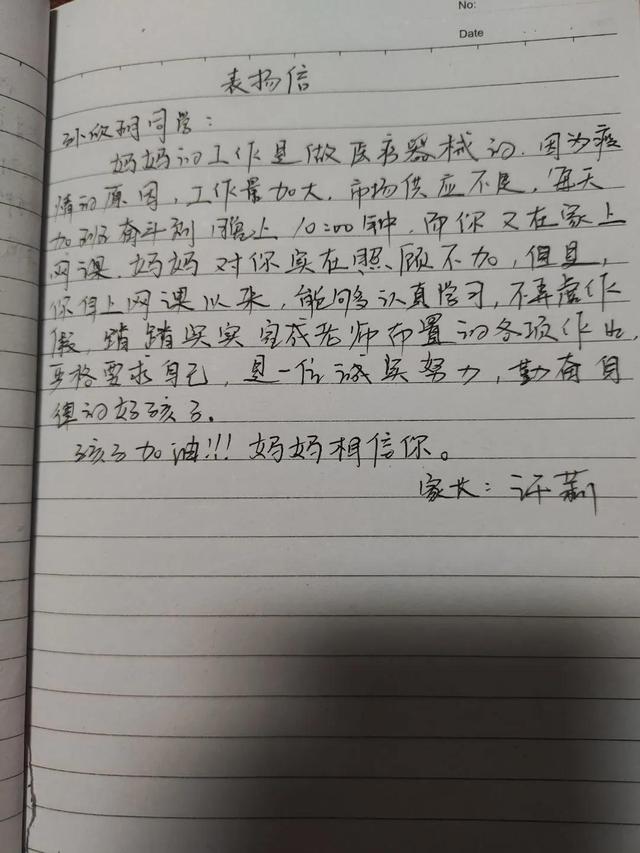 No:
Date
表扬信
孙欣玥同学：
妈妈的工作是做医疗器械的，因为疫
情的原因，工作量加大，市场供应不足，每天
加班奋斗到晚上10:00钟，而你又在家上
网课，妈妈对你实在照顾不加，但是，
你自上网课以来，能够认真学习，不弄虚作
假，踏踏实实完成老师布置的各项作业，
严格要求自己，是一位诚实努力，勤奋自
律的好孩子。
孩子加油!!! 妈妈相信你。
家长：许